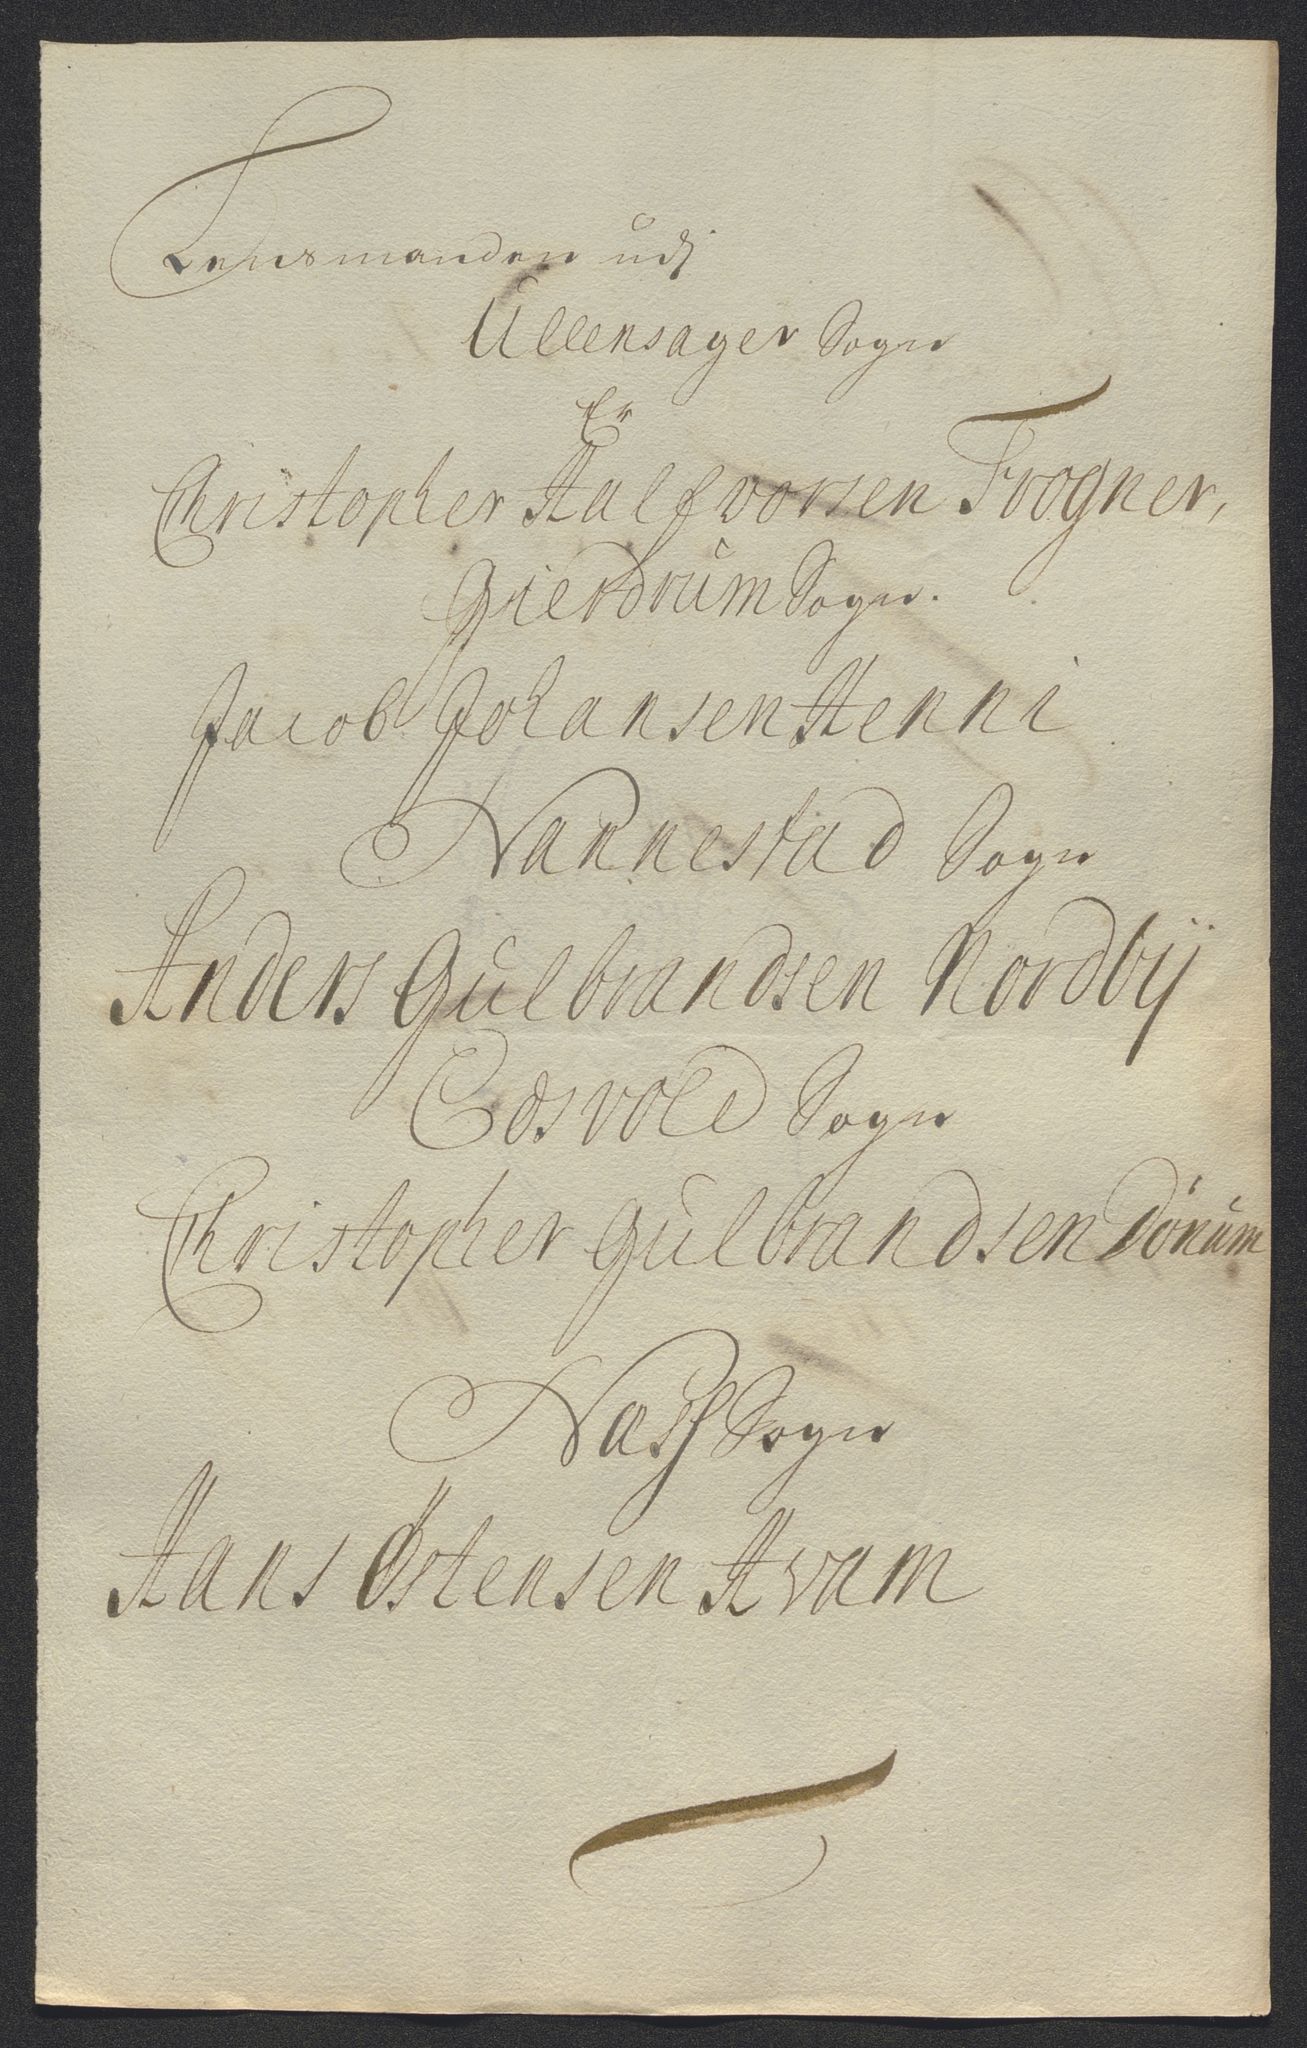 Lensmanden udj
Ullensager Sogn
Er
Christopher Halfvorsen Frogner,
Gierdrum Sogn.
Jacob Johansen Henni
Nannestad Sogn
Anders Gulbrandsen Nordbÿ
Edsvold Sogn
Christopher Gulbrandsen Dönum
Næss Sogn
Hans Østensen Hvam